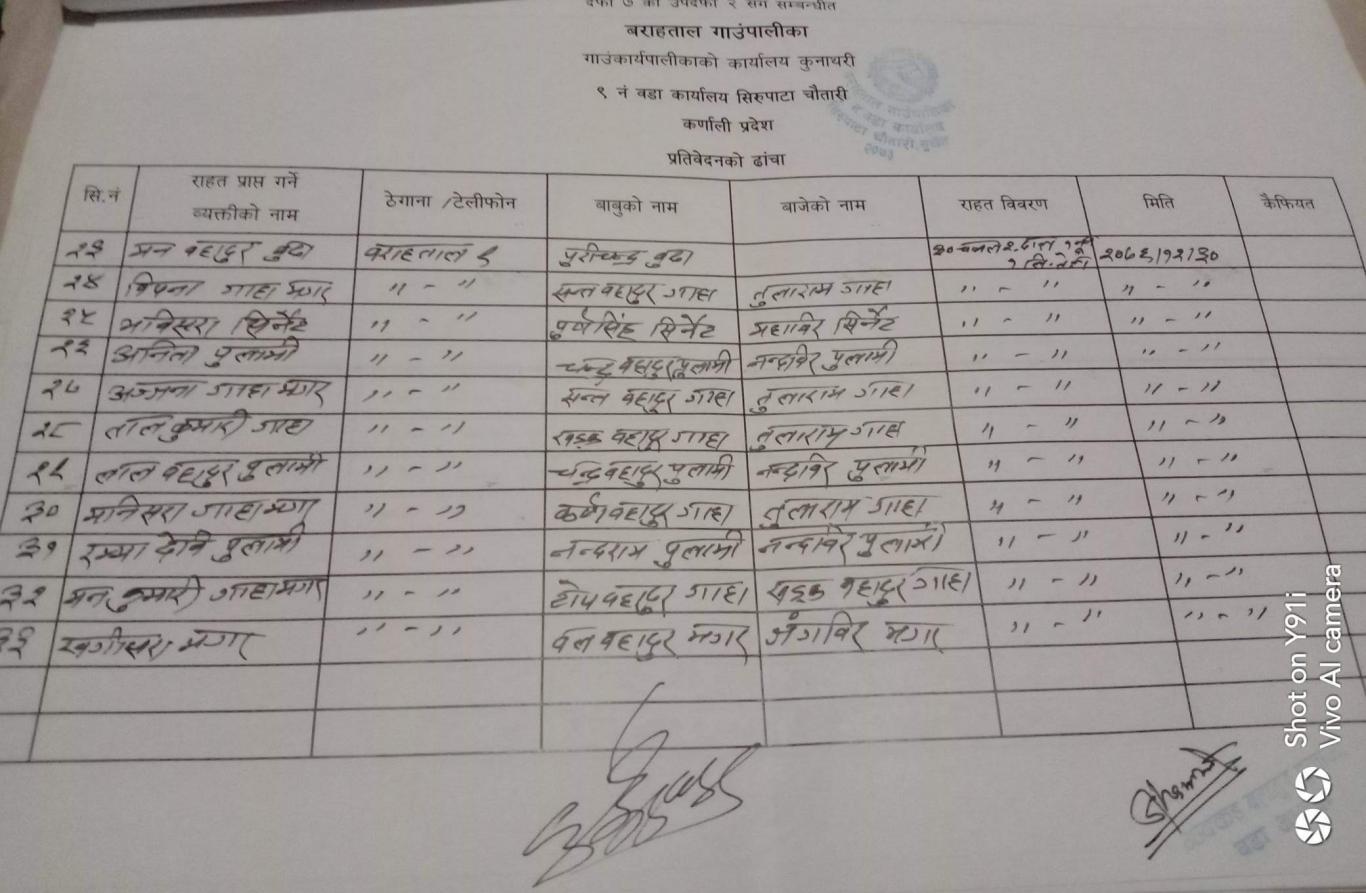 दफा ७ को उपदफा २ संग सम्बन्धीत
बराहताल गाउंपालीका
गाउंकार्यपालीकाको कार्यालय कुनाथरी
९ नं वडा कार्यालय सिरुपाटा चौतारी
कर्णाली प्रदेश
प्रतिवेदनको ढांचा
सि.नं राहत प्राप्त गर्ने व्यक्तीको नाम ठेगाना /टेलीफोन बाबुको नाम बाजेको नाम राहत विवरण मिति कैफियत
२३ मन बहादुर बुढा बराहताल ९ बुढा ३०
२४ गाहा मगर " - " सन्त बहादुर गाहा तुलाराम गाहा " - " " - "
२५ मनिसरा सिर्नेट " - " सिर्नेट महाविर सिर्नेट " - " " - "
अनिता पुलामी " - " चन्द्र बहादुर पुलामी नन्दविर पुलामी " - " " - "
२७ अञ्जना गाहा मगर " - " सन्त बहादुर गाहा तुलाराम गाहा " - " " - "
२८ लाल कुमारी गाहा " - " खड्क बहादुर गाहा तुलाराम गाहा " - " " - "
२९ लाल बहादुर पुलामी " - " चन्द्र बहादुर पुलामी नन्दविर पुलामी " - " " - "
३० मनिसरा गाहा मगर " - " कर्ण बहादुर गाहा तुलाराम गाहा " - " " - "
३१ देवि पुलामी " - " नन्दराम पुलामी नन्दविर पुलामी " - " " - "
३२ मन कुमारी गाहा मगर " - " टोप बहादुर गाहा खड्क बहादुर गाहा " - " " - "
३३ मगर " - " बल बहादुर मगर जंगविर मगर " - " " - "
Shot on Y91i
Vivo AI camera